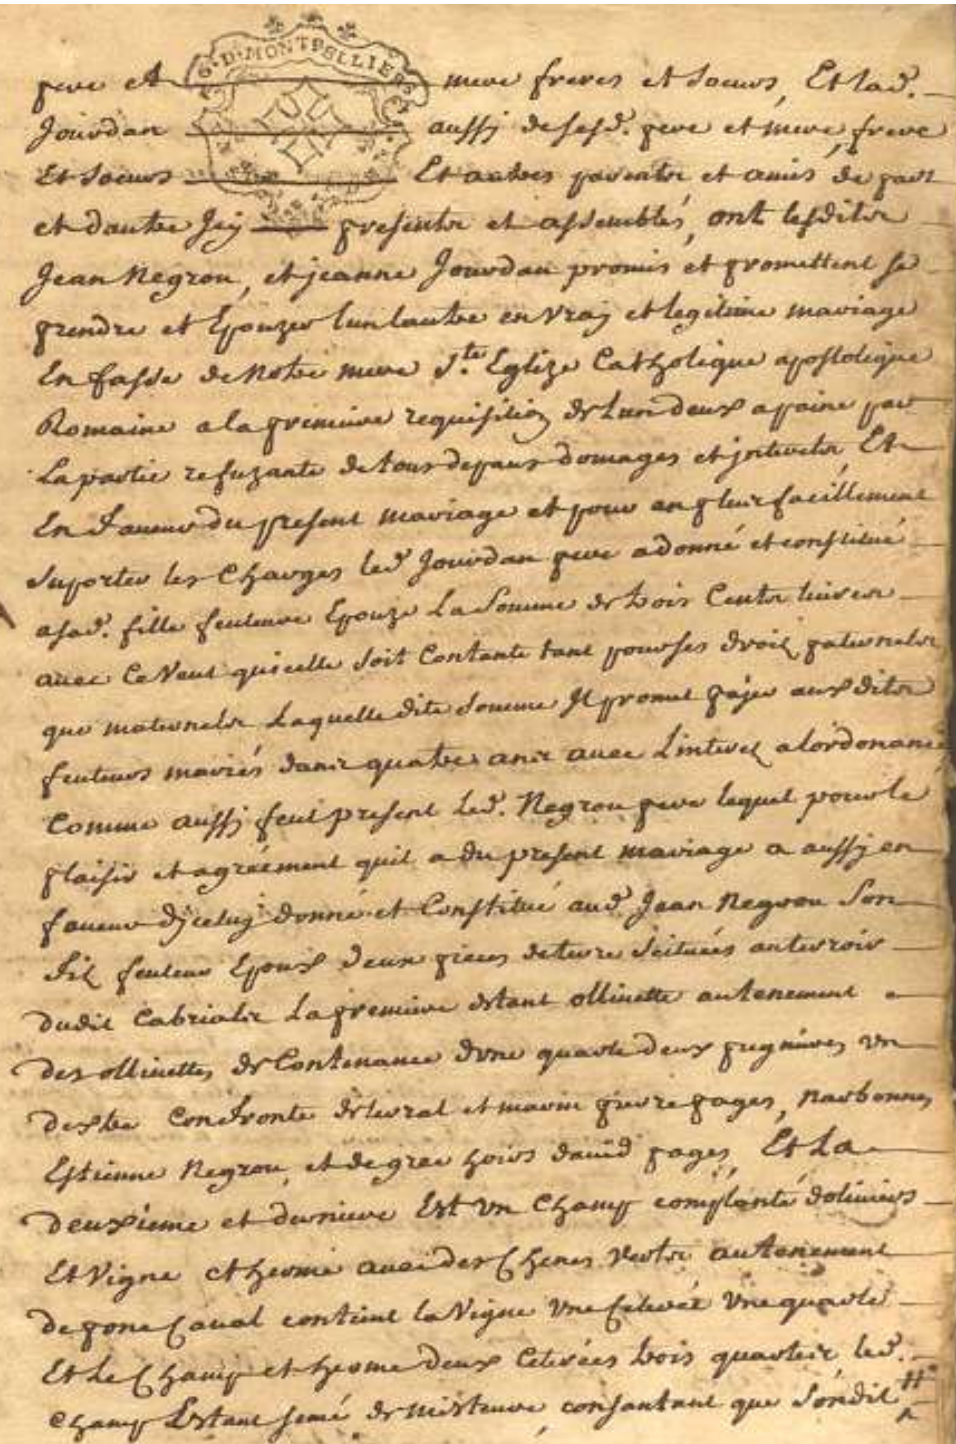 G. D. MONTPELLIER
pere et mere freres et Soeurs, Et lad.
Jourdan aussy de sesd. pere et mere, frere
Et Soeurs Et autres parentz et amis de part
et dautre Jcy presentz et assemblés, ont lesditz
Jean Negrou, et jeanne Jourdan promis et promettent se
prendre et Epouzer lun lautre en vray et legitime mariage
En fasse de Notre mere Ste. Eglize Catholique apostolique
Romaine a la premiere requisition de Lun deux a paine par
La partie refuzante de tous depans domages et jnteretz, Et
En faveur du present mariage et pour en pleus facillement
Suporter les Charges led. Jourdan pere a donné et constitué
a sad. fille feuteure Epouze La Somme de trois Centz livres
avec Ce Veut quicelle soit Contante tant pour ses droitz paternelz
que maternelz Laquelle dite Somme Jl promet pajer aux ditz
feuteurs mariés dans quatre ans avec Linteretz a lordonance
Comme aussy feut present Led. Negrou pere lequel pour le
plaisir et agreément quil a du present mariage a aussy en
faveur dyceluy donné et Constitué aud. Jean Negrou Son
Filz feuteur Epoux deux pieces de terre Scituées au terroir
dudit Cabrialz La premiere estant ollinette au tenement
des ollinettes de Contenance dune quarte deux pugnieres un
dextre Confronte de terral et marin pierre pages, narbonnes
Estienne Negrou, et de grec hoirs david pages, Et La
deuxieme et derniere Est un Champ complanté doliviers
Et Vigne et herme avec des Chenes vertz au tenement
de fone Caval contient la Vigne une Ceterée une quarte
Et Le Champ et herme deux Ceterées trois quartes, led.
Champ Estant semé de misteure, consantant que Sondit #